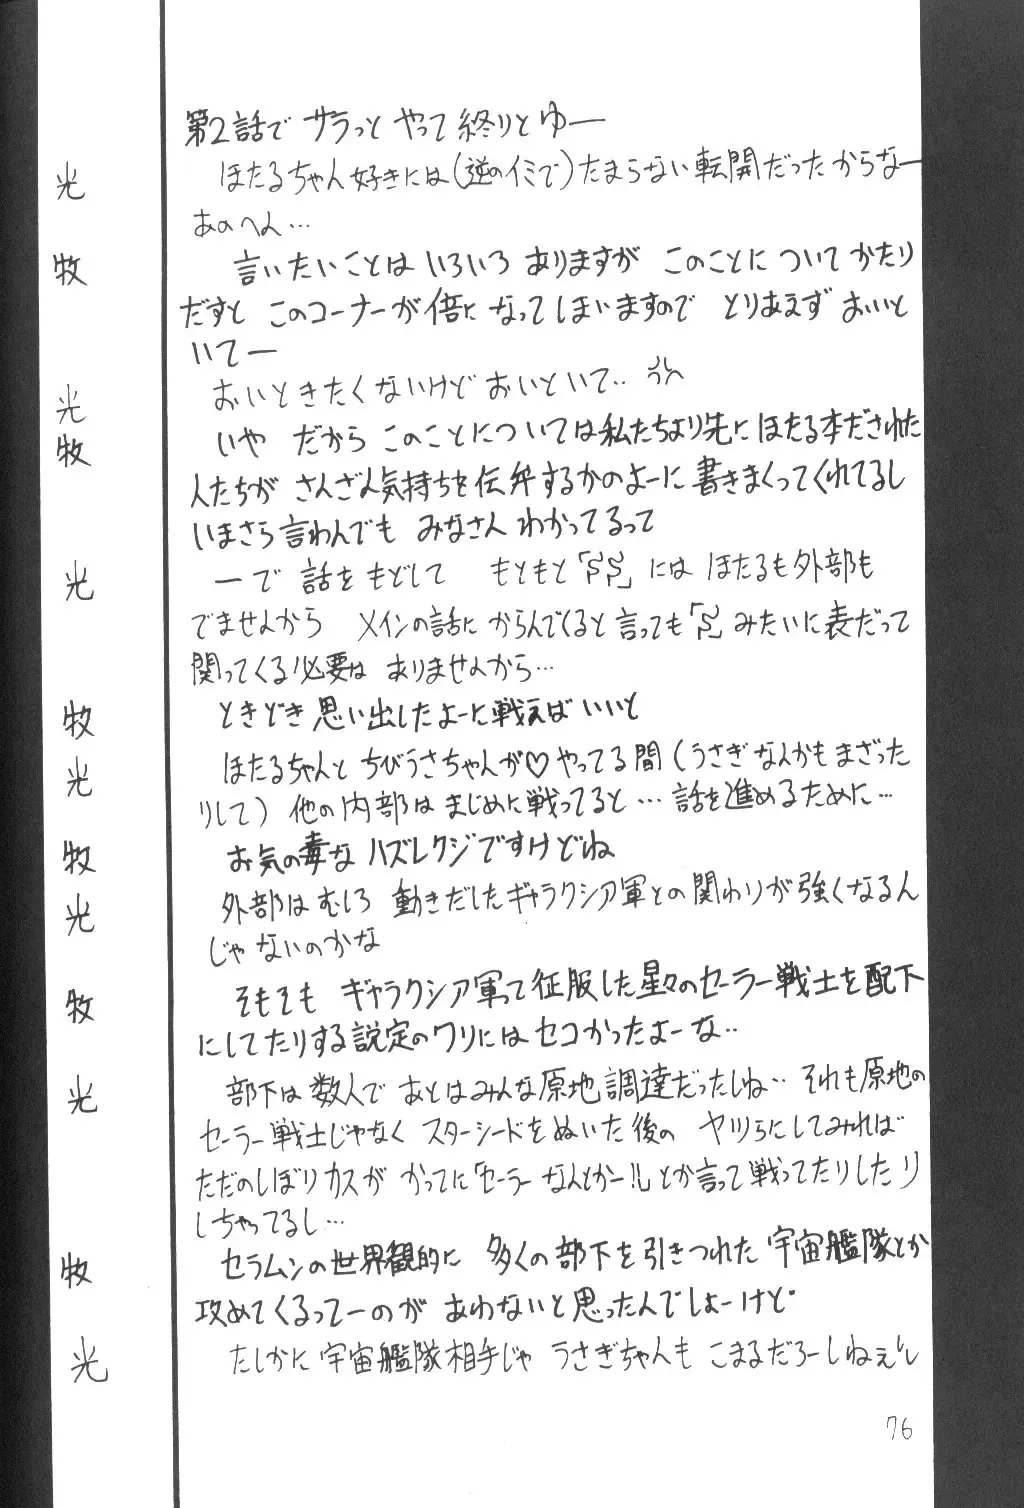 第2話で サラっと やって 終りとゆー
光 ほたるちゃん好きには(逆のイミで)たまらない転開だったからなー
あのへん…
牧 言いたいことは いろいろ ありますが このことについて かたり
だすと このコーナーが 倍に なってしまいますので とりあえず おいと
いてー
光 おいときたくないけど おいといて‥ うん
牧 いや だから このことについては私たちより先に ほたる本だされた
人たちが さんざん気持ちを伝弁するかのよーに 書きまくってくれてるし
いまさら言わんでも みなさん わかってるって
光 ーで 話を もどして もともと「SS」には ほたるも外部も
でませんから メインの話に からんでくると言っても「S」みたいに表だって
関ってくる必要は ありませんから…
牧 ときどき 思い出したよーに戦えば いいと
光 ほたるちゃんと ちびうさちゃんが♡やってる間(うさぎなんかもまざった
りして) 他の内部は まじめに戦ってると… 話を進めるために…
牧 お気の毒な ハズレクジですけどね
光 外部は むしろ 動きだしたギャラクシア軍との関わりが強くなるん
じゃないのかな
牧 そもそも ギャラクシア軍って征服した星々のセーラー戦士を配下
にしてたりする説定のワリには セコかったよーな‥
光 部下は 数人で あとはみんな原地調達だったしね‥ それも原地の
セーラー戦士じゃなく スターシードをぬいた後の ヤツらにしてみれば
ただのしぼりカスが かってに「セーラーなんとかー!!」とか言って戦ってたりしたり
しちゃってるし…
牧 セラムンの世界観的に 多くの部下を引きつれた 宇宙艦隊とか
攻めてくるってーのが あわないと思ったんでしょーけど
光 たしかに 宇宙艦隊相手じゃ うさぎちゃんも こまるだろーしねぇ
76